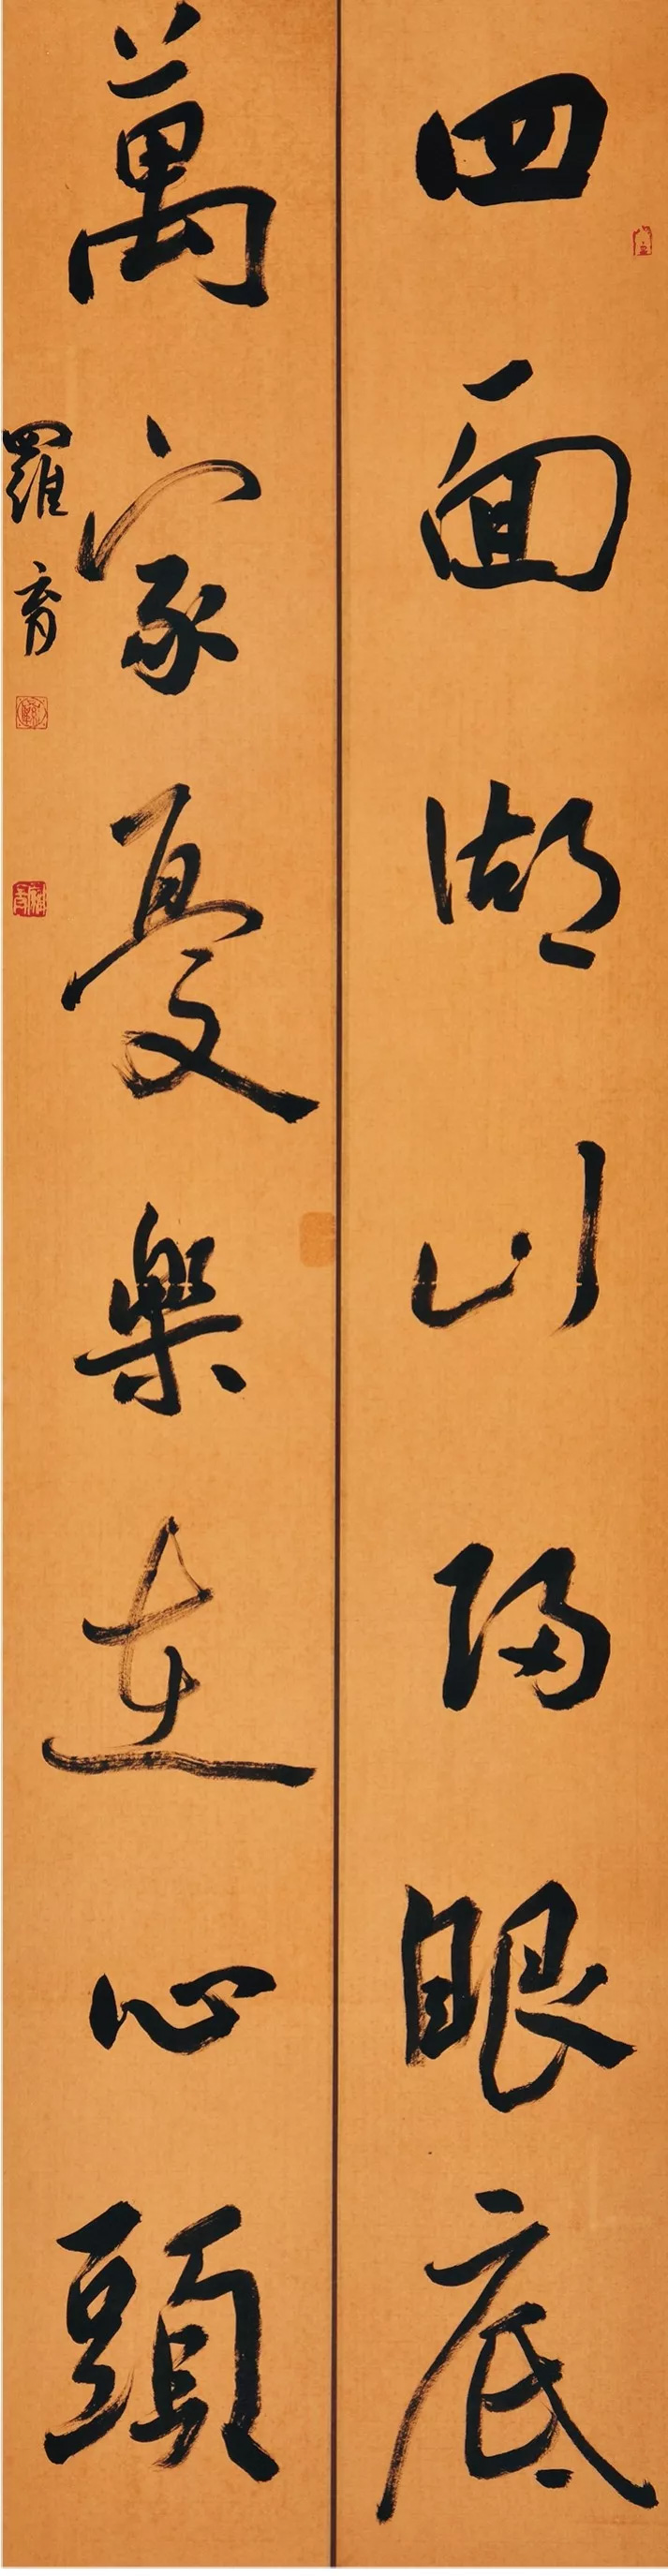 四面湖山歸眼底
萬家憂樂在心頭
羅育